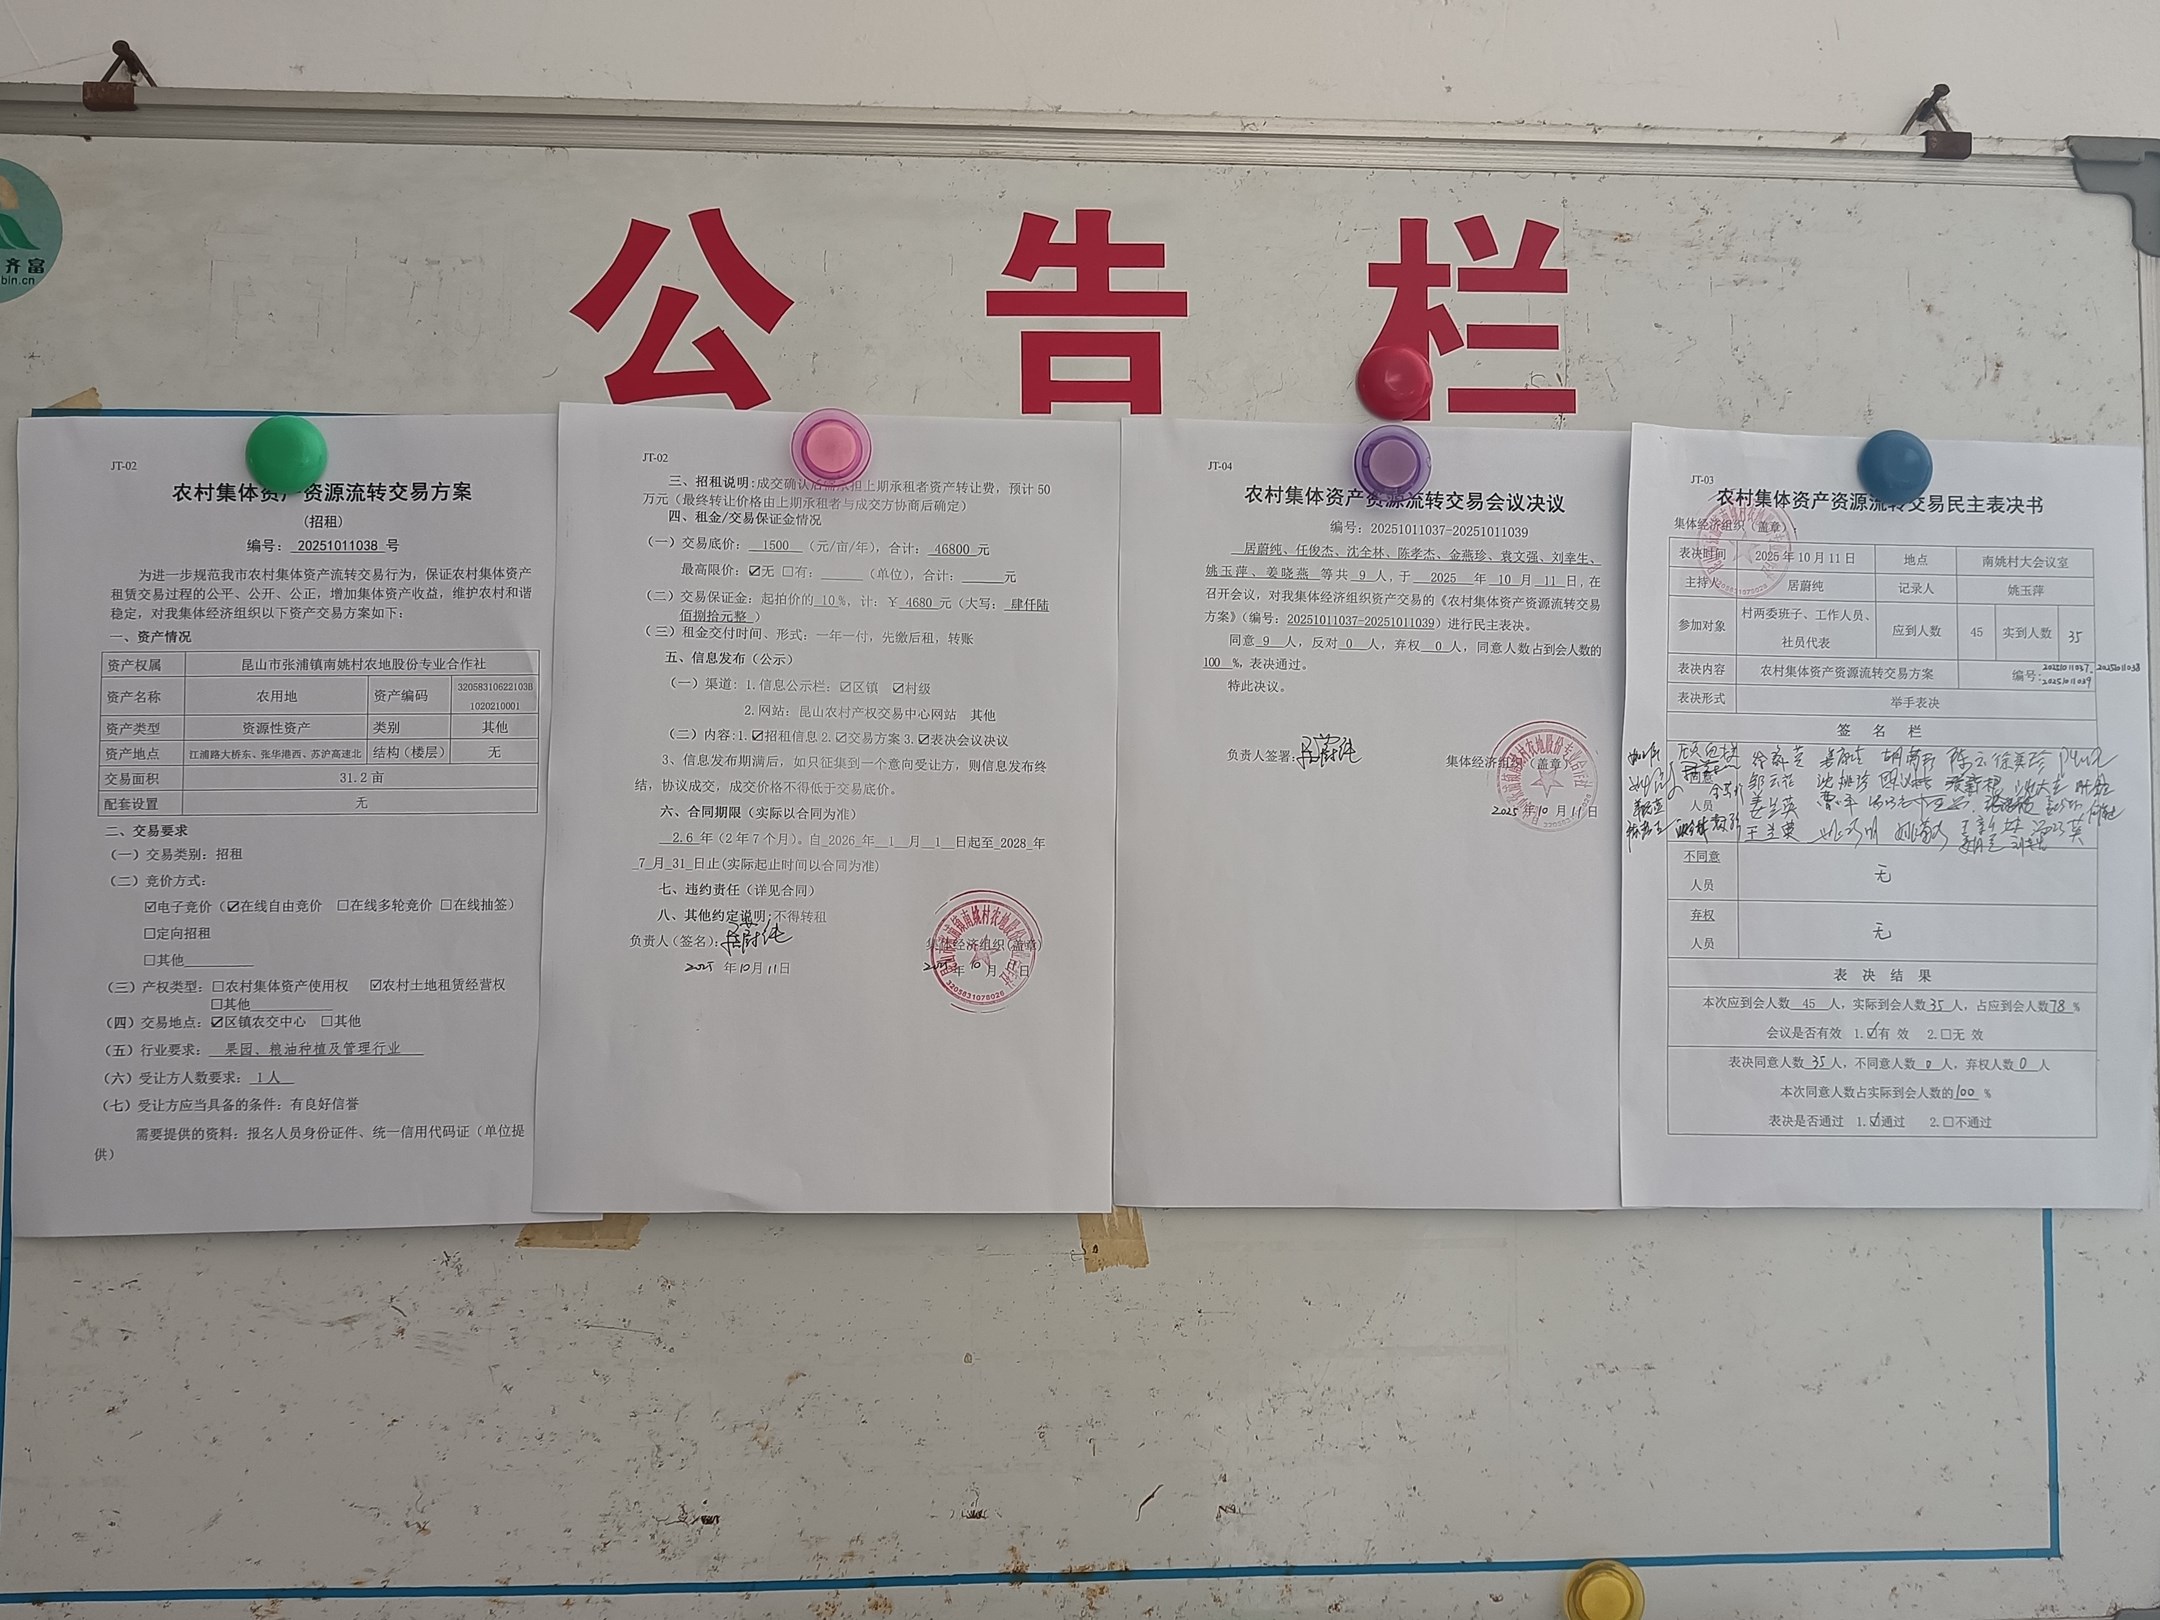 公告栏
齐富
bin.cn
JT-02
农村集体资产资源流转交易方案
(招租)
编号: 20251011038 号
为进一步规范我市农村集体资产流转交易行为,保证农村集体资产
租赁交易过程的公平、公开、公正,增加集体资产收益,维护农村和谐
稳定,对我集体经济组织以下资产交易方案如下:
一、资产情况
资产权属 昆山市张浦镇南姚村农地股份专业合作社
资产名称 农用地 资产编码 320583106221038
1020210001
资产类型 资源性资产 类别 其他
资产地点 江浦路大桥东、张华港西、苏沪高速北 结构(楼层) 无
交易面积 31.2 亩
配套设置 无
二、交易要求
(一)交易类别:招租
(二)竞价方式:
☑电子竞价(☑在线自由竞价 □在线多轮竞价 □在线抽签)
□定向招租
□其他
(三)产权类型:□农村集体资产使用权 ☑农村土地租赁经营权
□其他
(四)交易地点:☑区镇农交中心 □其他
(五)行业要求: 果园、粮油种植及管理行业
(六)受让方人数要求: 1人
(七)受让方应当具备的条件:有良好信誉
需要提供的资料:报名人员身份证件、统一信用代码证(单位提
供)
JT-02
三、招租说明:成交确认后需承担上期承租者资产转让费,预计 50
万元(最终转让价格由上期承租者与成交方协商后确定)
四、租金/交易保证金情况
(一)交易底价: 1500 (元/亩/年),合计: 46800 元
最高限价:☑无 □有:______(单位),合计:______元
(二)交易保证金:起拍价的 10%,计:¥ 4680 元(大写: 肆仟陆
佰捌拾元整 )
(三)租金交付时间、形式:一年一付,先缴后租,转账
五、信息发布(公示)
(一)渠道:1.信息公示栏:☑区镇 ☑村级
2.网站:昆山农村产权交易中心网站 其他
(二)内容:1.☑招租信息 2.☑交易方案 3.☑表决会议决议
3、信息发布期满后,如只征集到一个意向受让方,则信息发布终
结,协议成交,成交价格不得低于交易底价。
六、合同期限(实际以合同为准)
2.6 年(2 年 7 个月)。自 2026 年 1 月 1 日起至 2028 年
7 月 31 日止(实际起止时间以合同为准)
七、违约责任(详见合同)
八、其他约定说明:不得转租
负责人(签名):居蔚纯
集体经济组织(盖章)
2025 年 10 月 11 日
2025 年 10 月 11 日
3205831078026
JT-04
农村集体资产资源流转交易会议决议
编号:20251011037-20251011039
居蔚纯、任俊杰、沈全林、陈孝杰、金燕珍、袁文强、刘幸生、
姚玉萍、姜晓燕 等共 9 人,于 2025 年 10 月 11 日,在
召开会议,对我集体经济组织资产交易的《农村集体资产资源流转交易
方案》(编号:20251011037-20251011039)进行民主表决。
同意 9 人,反对 0 人,弃权 0 人,同意人数占到会人数的
100 %,表决通过。
特此决议。
负责人签署:居蔚纯
集体经济组织(盖章)
2025 年 10 月 11 日
JT-03
农村集体资产资源流转交易民主表决书
集体经济组织(盖章):
表决时间 2025 年 10 月 11 日 地点 南姚村大会议室
主持人 居蔚纯 记录人 姚玉萍
参加对象 村两委班子、工作人员、
社员代表 应到人数 45 实到人数 35
表决内容 农村集体资产资源流转交易方案 编号:20251011037、20251011038
20251011039
表决形式 举手表决
签 名 栏
同意
人员
不同意
人员 无
弃权
人员 无
表 决 结 果
本次应到会人数 45 人,实际到会人数 35 人,占应到会人数 78 %
会议是否有效 1.☑有 效 2.□无 效
表决同意人数 35 人,不同意人数 0 人,弃权人数 0 人
本次同意人数占实际到会人数的 100 %
表决是否通过 1.☑通过 2.□不通过